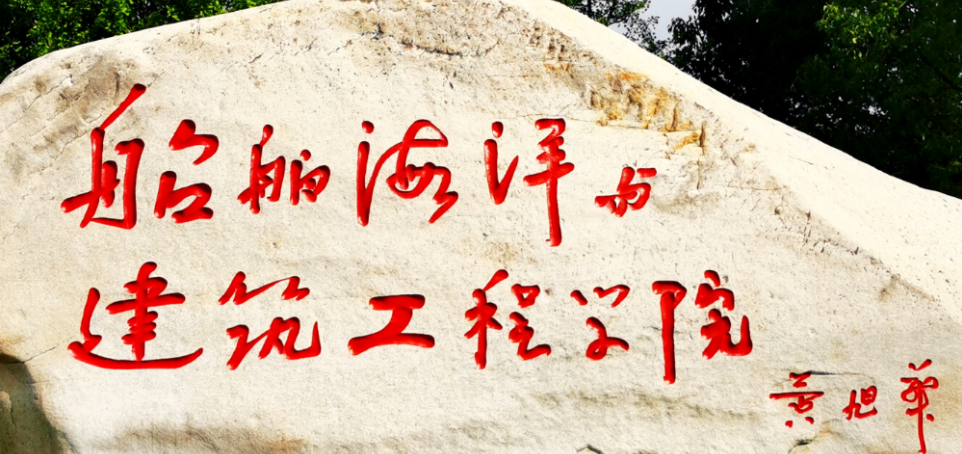 船舶海洋与
建筑工程学院
黄旭华